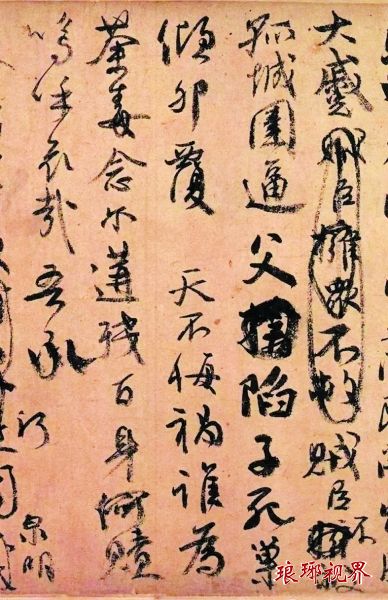 大蹙賊臣擁衆不救賊臣不救
孤城圍逼父陷子死巢
傾卵覆 天不悔禍誰為
荼毒念爾遘殘百身何贖
嗚乎哀哉吾承
泉明
琅琊视界